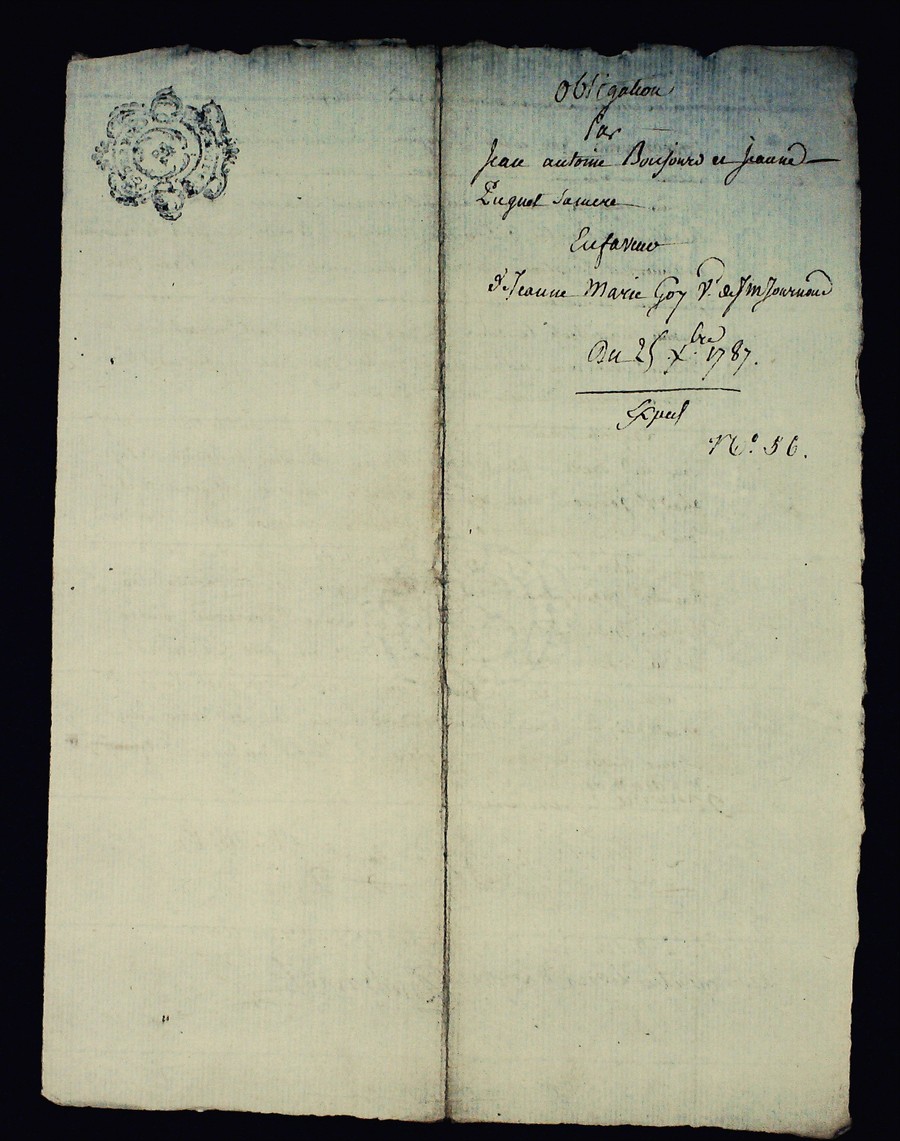 Obligation
Par
Jean antoine Bonjourd et Jeanne
Puguet Sa mere
En faveur
de Jeanne Marie Goy Vᵉ de Jm Journoud
Du 25 Xbre 1787.
Exped
N° 56.